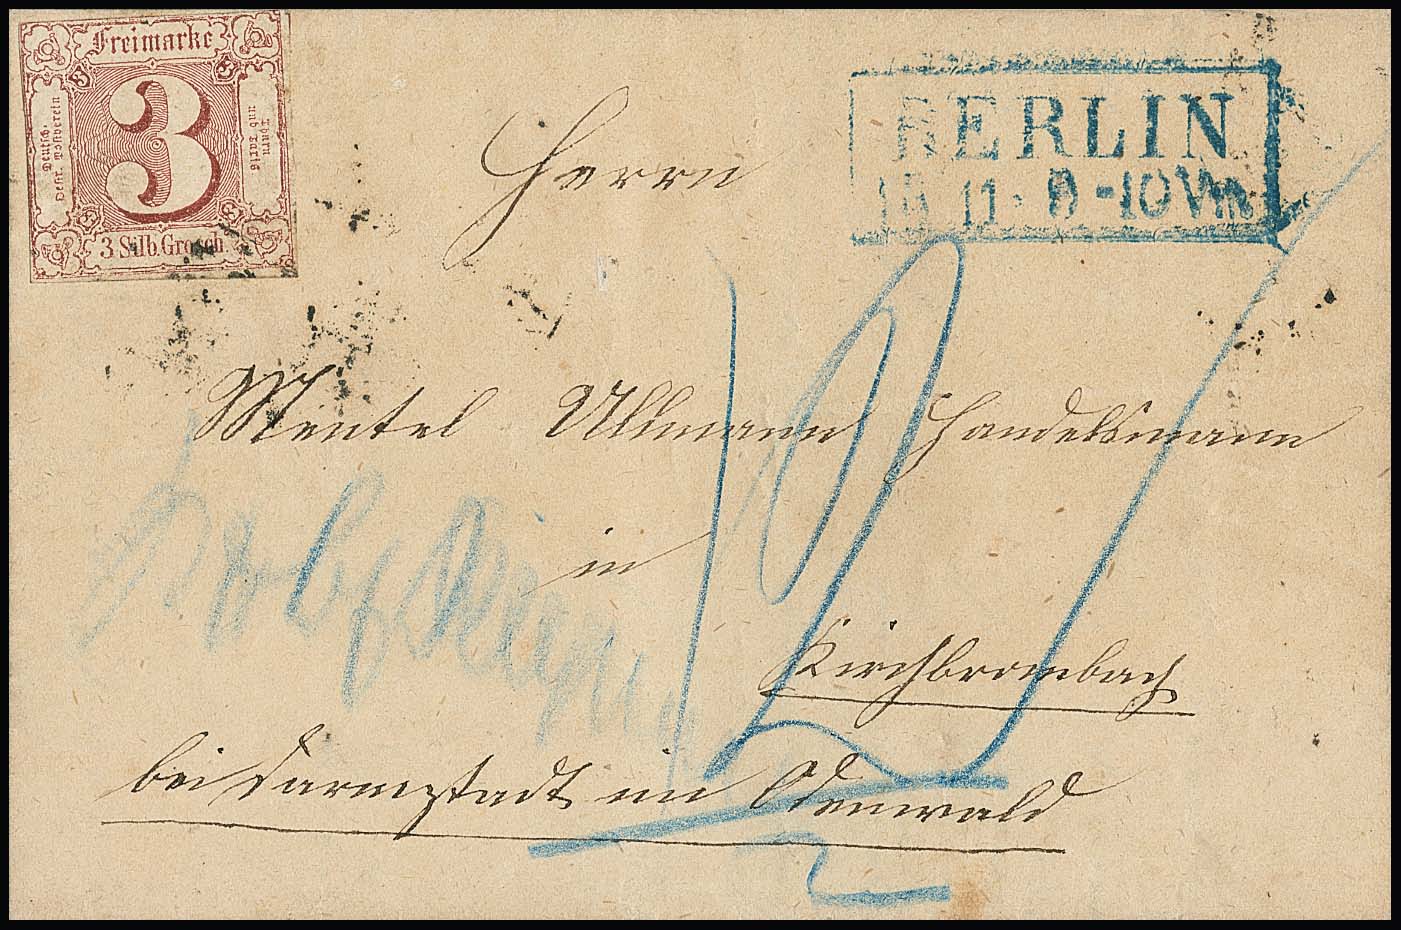 Freimarke
Deutsch.
Oestr. Postverein
3
Thurn
und Taxis
3 Silb. Grosch.
BERLIN
11 9-10 Vm
Herrn
Mentel Ullmann Handelsmann
in
Kirchbrombach
bei Darmstadt im Odenwald